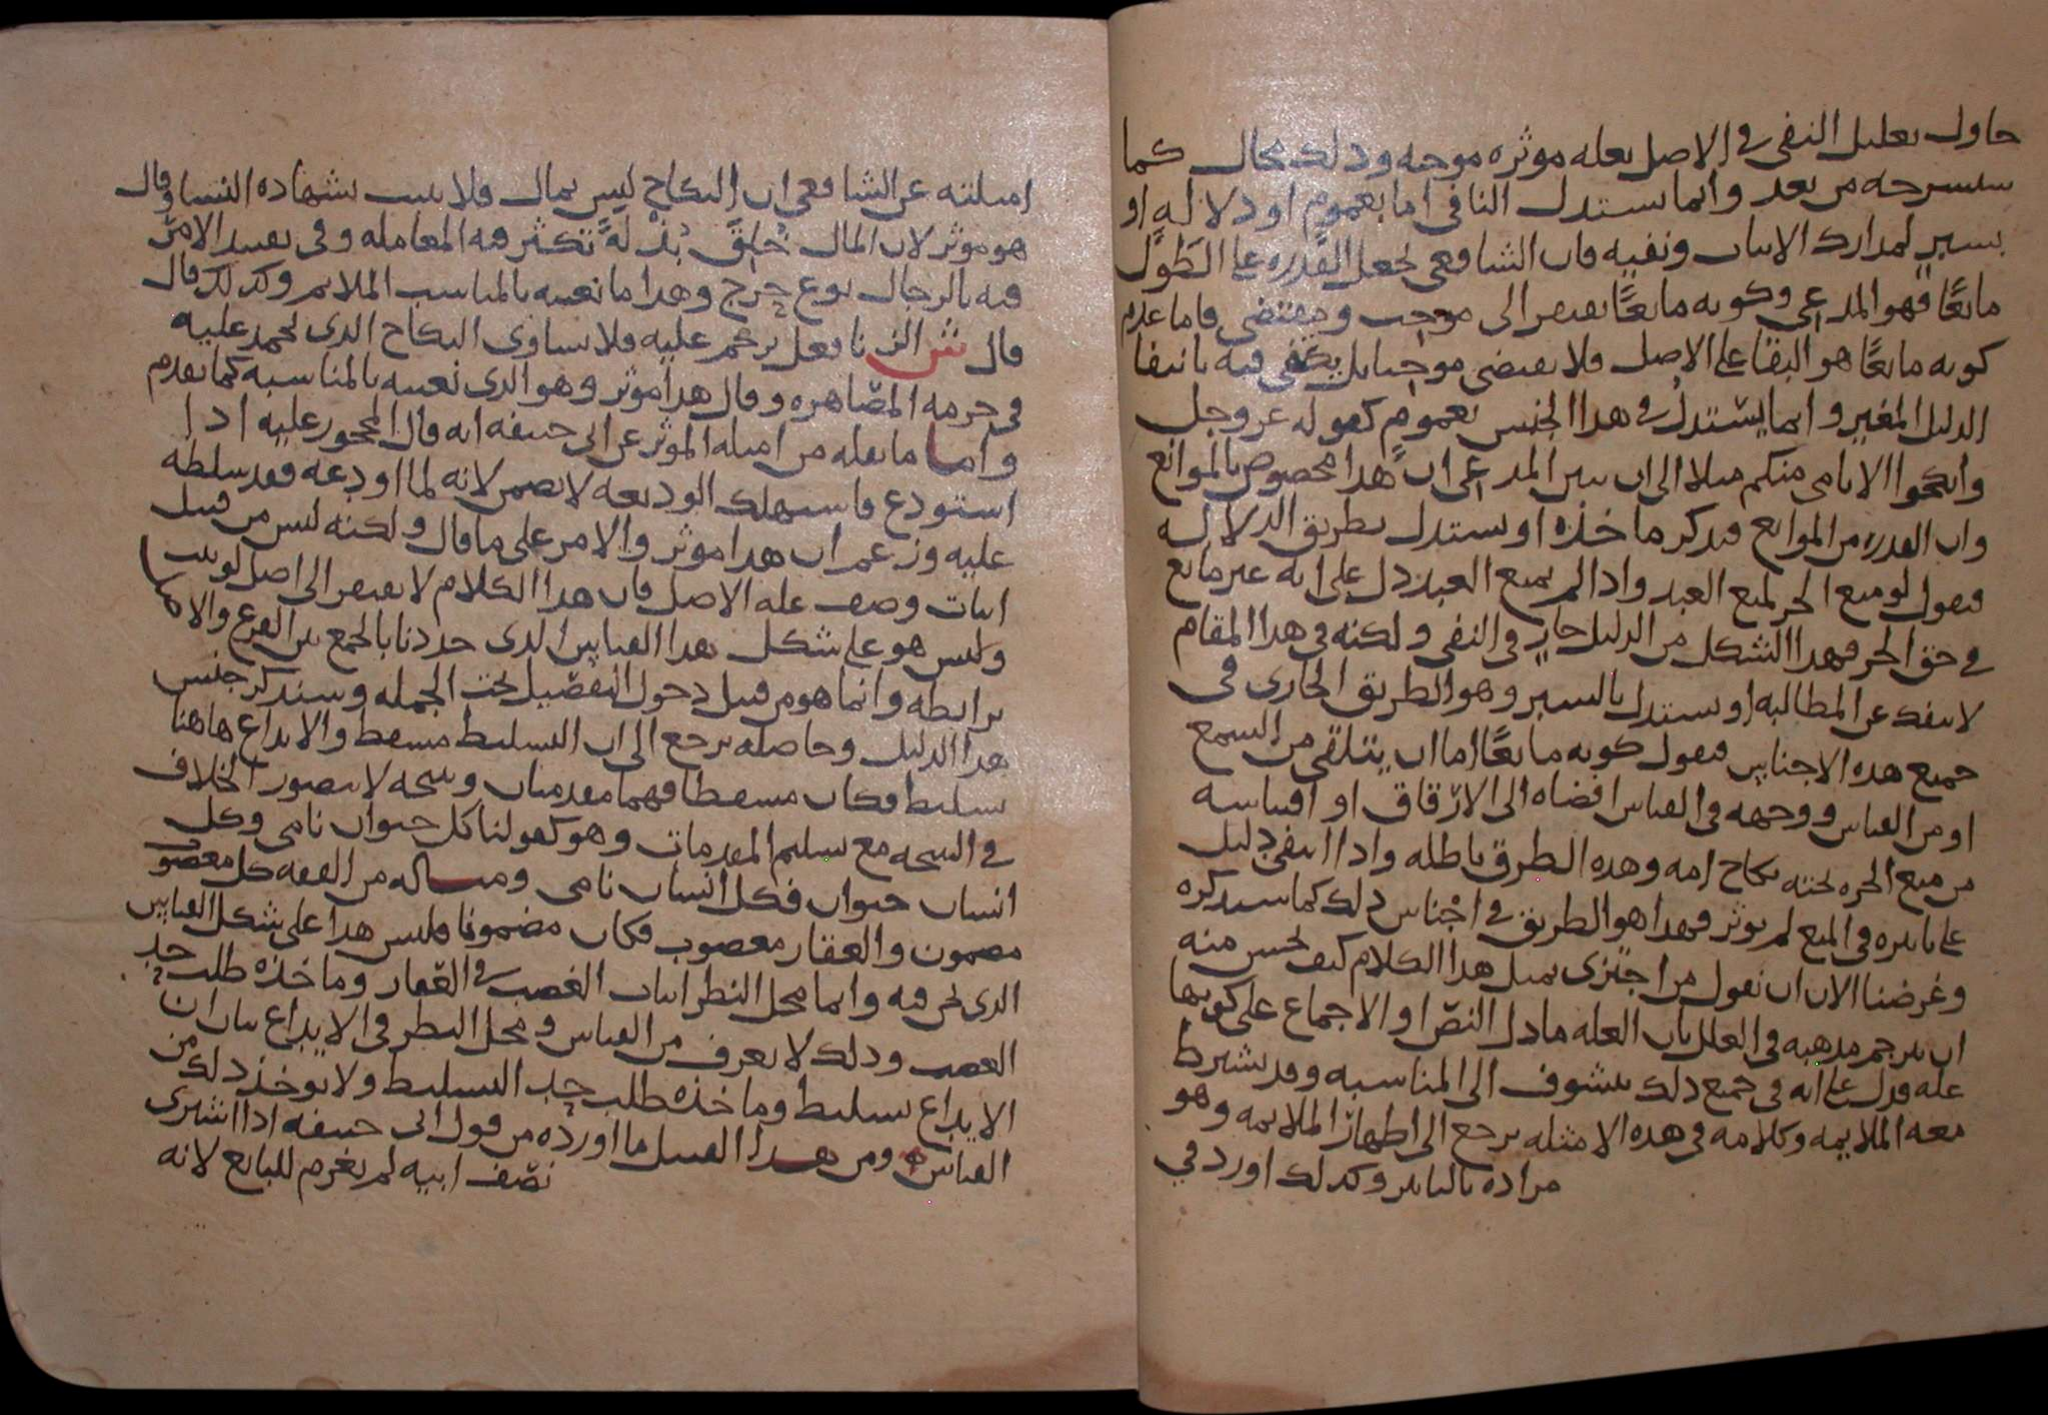 حاول تعليل النفى فى الاصل بعله موثره موجبه وذلك محال كما
سنشرحه من بعد وانما يستدل النافى اما بعموم او دلاله او
بسبر لمدارك الاثبات ونفيه فان الشافعى يجعل القدره على الطول
مانعا فهو المدعى وكونه مانعا يفتقر الى موجب ومقتضى فاما عدم
كونه مانعا هو البقا على الاصل فلا يقتضى موجبا بل يكفى فيه بانتفا
الدليل المغير وانما يستدل فى هذا الجنس بعموم كقوله عز وجل
وانكحوا الايامى منكم مثلا الى ان يبين المدعى ان هذا مخصوص بالموانع
وان القدره من الموانع فيذكر ماخذه او يستدل بطريق الدلاله
فيقول لو منع الحر لمنع العبد واذا لم يمنع العبد دل على انه غير مانع
فى حق الحر فهذا الشكل من الدليل جار فى النفى ولكنه فى هذا المقام
لا ينفك عن المطالبه او يستدل بالسبر وهو الطريق الجارى فى
جميع هذه الاجناس فيقول كونه مانعا اما ان يتلقى من السمع
او من القياس ووجهه فى القياس افضاه الى الارقاق او اقتباسه
من منع الحره تحته نكاح امه وهذه الطرق باطله واذا انتفى دليل
على تاثيره فى المنع لم يوثر فهذا هو الطريق فى اجناس ذلك كما سنذكره
وغرضنا الان ان نقول من اجتزى بمثل هذا الكلام كيف يحسن منه
ان يترجم مذهبه فى العلل بان العله ما دل النص او الاجماع على كونها
عله فدل على انه فى جميع ذلك يتشوف الى المناسبه وقد يشترط
معه الملايمه وكلامه فى هذه الامثله يرجع الى اظهار الملايمه وهو
مراده بالتاثير وكذلك اورد فى
امثلته عن الشافعى ان النكاح ليس بمال فلا يثبت بشهاده النسا وقال
هو موثر لان المال خلق بذله تكثر فيه المعامله وفى تقييد الامر
فيه بالرجال نوع حرج وهذا ما نعنيه بالمناسب الملايم وكذلك قال
قال ش الزنا فعل يرجم عليه فلا يساوى النكاح الذى يحمد عليه
فى حرمه المصاهره وقال هذا موثر وهو الذى نعنيه بالمناسبه كما تقدم
واما ما نقله من امثله الموثر عن ابى حنيفه انه قال المحجور عليه اذا
استودع فاستهلك الوديعه لا يضمن لانه لما اودعه فقد سلطه
عليه وزعم ان هذا موثر والامر على ما قال ولكنه ليس من قبيل
اثبات وصف عله الاصل فان هذا الكلام لا يفتقر الى اصل لو ثبت
وليس هو على شكل هذا القياس الذى حددنا بالجمع بين الفرع والاصل
برابطه وانما هو من قبيل دخول التفصيل تحت الجمله وسنذكر جنس
هذا الدليل وحاصله يرجع الى ان التسليط مسقط والايداع هاهنا
تسليط فكان مسقطا فهما مقدمتان ونتيجه لا يتصور الخلاف
فى النتيجه مع تسليم المقدمات وهو كقولنا كل حيوان نامى وكل
انسان حيوان فكل انسان نامى ومساله من الفقه كل مغصوب
مضمون والعقار مغصوب فكان مضمونا فليس هذا على شكل القياس
الذى نحن فيه وانما محل النظر اثبات الغصب فى العقار وماخذه طلب حد
الغصب وذلك لا يعرف من القياس ومحل النظر فى الايداع بيان ان
الايداع تسليط وماخذه طلب حد التسليط ولا يوخذ ذلك من
القياس ومن هذا القبيل ما اورده من قول ابى حنيفه اذا اشترى
نصف ابيه لم يغرم للبايع لانه